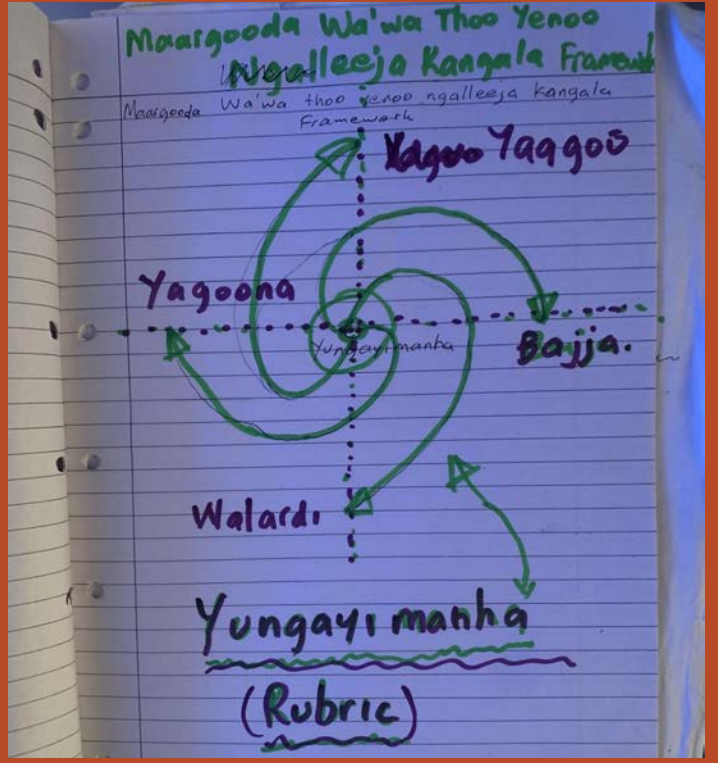 Maargooda Wa'wa Thoo Yenoo
Ngalleeja Kangala Framework
Maargooda Wa'wa thoo yenoo ngalleeja kangala
Framework
Yaagoo
Yagoona
Yungayimanha
Bajja.
Walardi
Yungayimanha
(Rubric)